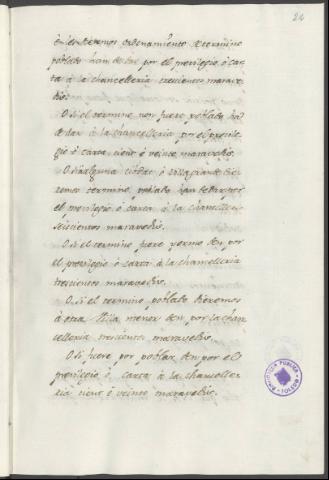 24
ò les dieremos ordenamiento de termino
poblado han de dar por el previlegio, ò car-
ta à la chancelleria trescientos marave-
dis.
O si el termino non fuere poblado, há
de dar à la chancelleria por el previle-
gio ò carta ciento è veinte maravedis.
O si à alguna cibdat, ò villa grande die-
remos termino poblado han de dar por
el previlegio ò carta à la chancelleria
seiscientos maravedis.
O si el termino fuere yermo den por
el previlegio ò carta à la chancelleria
trescientos maravedis.
O si el termino poblado dieremos
à otra Villa menor den por la chan-
celleria trescientos maravedis.
O si fuere por poblar, den por el
previlegio ò carta à la chancelle-
ria ciento è veinte maravedis.
BIBLIOTECA PUBLICA